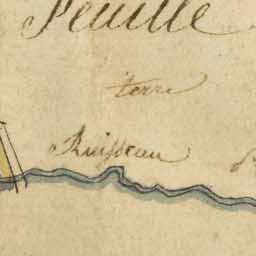 Feuille
terre
Ruisseau